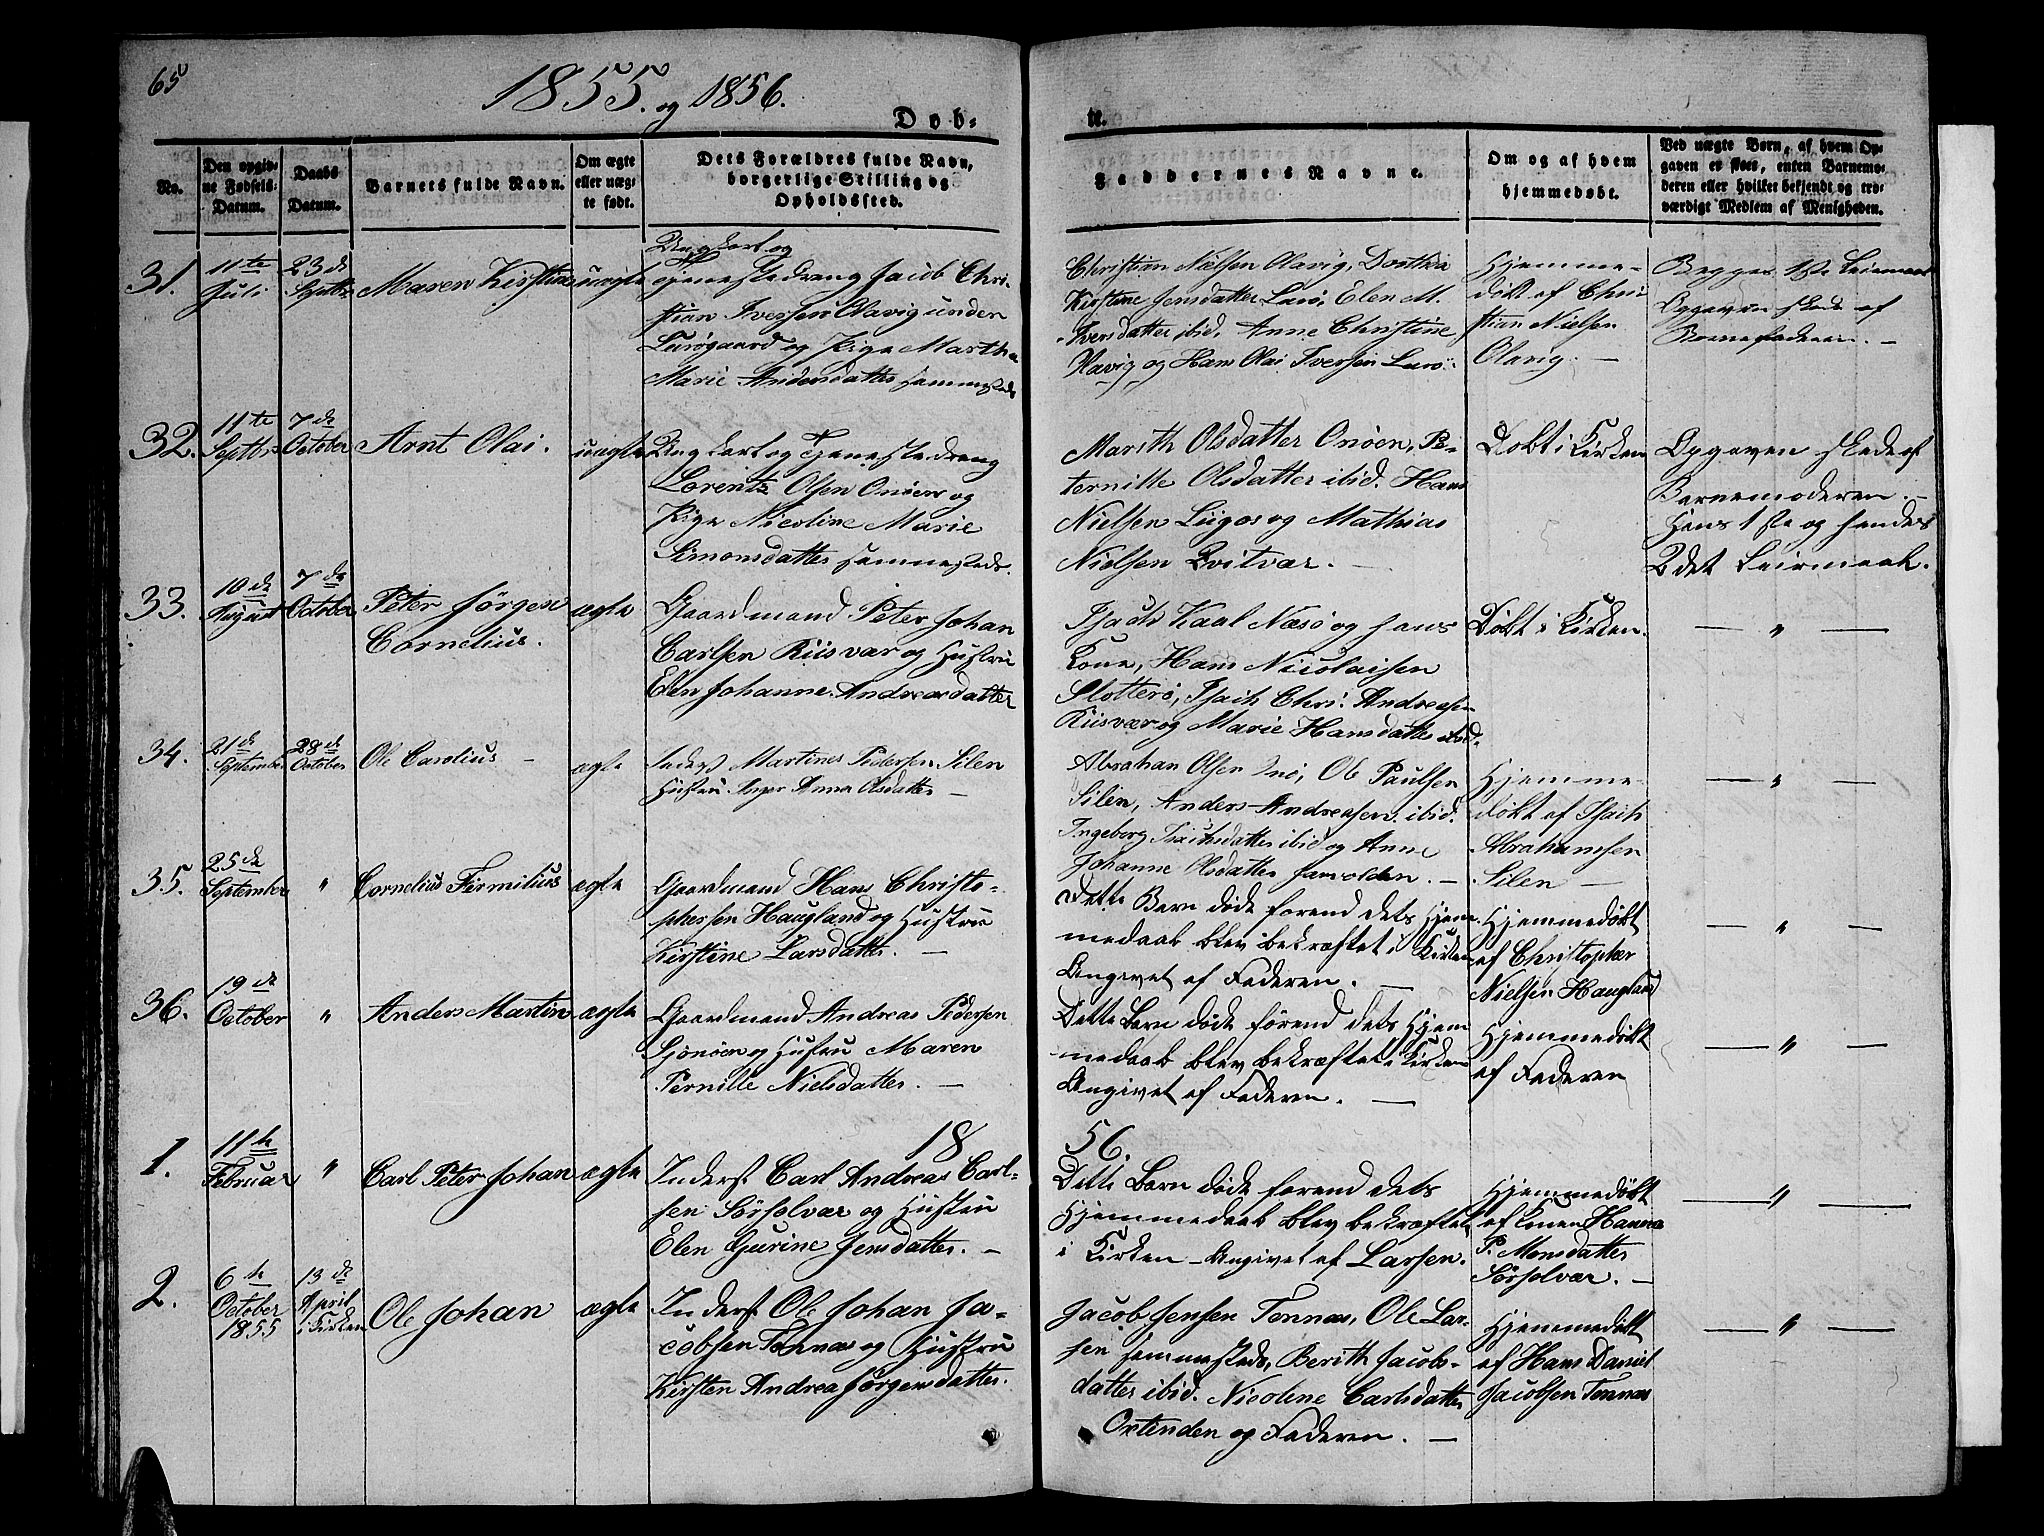 65
1855. og 1856.
Døb-
te.
No.
Den opgiv-
ne Fødsels-
Datum.
Daabs
Datum.
Barnets fulde Navn.
Om ægte
eller uæg-
te født.
Dets Forældres fulde Navn,
borgerlige Stilling og
Opholdssted.
Faddernes Navne.
Om og af hvem
hjemmedøbt.
Ved uægte Børn, af hvem Op-
gaven er skeet, enten Barnemo-
deren eller hvilket bekjendt og tro-
værdigt Medlem af Menigheden.
31.
11te
Juli
23de
Septbr
Maren Kirstine
uægte
Ungkarl og
Tjenestedreng Jacob Chri-
stian Iversen Olavig under
Lurøgaard og Pige Martha
Marie Andersdatter sammesteds
Christian Nielsen Olavig, Dorthea
Kirstine Jensdatter Lurø, Elen M.
Iversdatter ibid, Anne Christine
Olavig og Hans Olai Iversen Lurø.
Hjemme-
døbt af Chri-
stian Nielsen
Olavig. —
Begges 1ste Leiermaal
Opgaven skede af
Barnefaderen. —
32.
11te
Septbr
7de
October
Arnt Olai.
uægte
Ungkarl og Tjenestedreng
Lorentz Olsen Onøen og
Pige Nicoline Marie
Simonsdatter sammesteds.
Marith Olsdatter Onøen, Pe-
ternille Olsdatter ibid. Hans
Nielsen Liigos og Mathias
Nielsen Kvitvær. —
Døbt i Kirken
Opgaven skede af
Barnemoderen. —
Hans 1ste og hendes
2det Leiermaal.
33.
10de
August
7de
October
Peter Jørgen
Cornelius.
ægte
Gaardmand Peter Johan
Carlsen Riisvær og Hustru
Elen Johanne Andreasdatter
Isach Kaal Næsø og hans
Kone, Hans Nicolaisen
Slotterø, Isach Chri. Andreasen
Riisvær og Marie Hansdatter ibid.
Døbt i Kirken.
— " —
34.
21de
September
28de
October
Ole Carolius —
ægte
Inderst Martines Pedersen Silen
Hustru Inger Anna Olsdatter —
Abrahan Olsen Onø, Ole Paulsen
Silen, Anders Andreasen ibid.
Ingeborg Isachsdatter ibid og Anne
Johanne Olsdatter Harolden. —
Hjemme-
døbt af Isach
Abrahamsen
Silen —
— " —
35.
25de
September
"
Cornelius Firmilius
ægte
Gaardmand Hans Christo-
phersen Haugland og Hustru
Kirstine Larsdatter. —
Dette Barn døde forend dets Hjem-
medaab blev bekræftet i Kirken
Angivet af Faderen. —
Hjemmedøbt
af Christopher
Nielsen Haugland
— " —
36.
19de
October
"
Anders Martin
ægte
Gaardmand Andreas Pedersen
Sjonøen og Hustru Maren
Pernille Nielsdatter. —
Dette Barn døde førend dets Hjem
medaab blev bekræftet i Kirken
Angivet af Faderen. —
Hjemmedøbt
af Faderen
— " —
18
56.
1.
11te
Februar
"
Carl Peter Johan
ægte
Inderst Carl Andreas Carl-
sen Sørsolvær og Hustru
Elen Gurine Jensdatter. —
Dette Barn døde forend dets
Hjemmedaab blev bekræftet
i Kirken – Angivet af Larsen.
Hjemmedøbt
af Konen Hanna
P. Monsdatter
Sørsolvær. —
— " —
2.
6te
October
1855
13de
April
i Kirken
Ole Johan
ægte
Inderst Ole Johan Ja-
cobsen Tonnæs og Hustru
Kirsten Andrea Jørgensdatter.
Jacob Jensen Tonnæs, Ole Lar-
sen sammesteds, Berith Jacobs-
datter ibid. Nicoline Carlsdatter
Oxtinden og Faderen. —
Hjemmedøbt
af Hans Daniel
Jacobsen Tonnæs
— " —